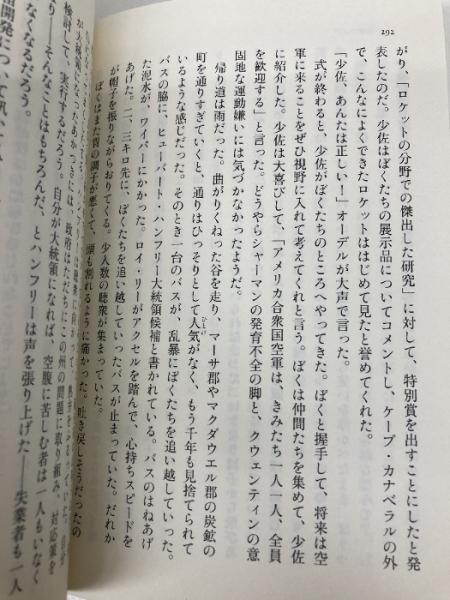 292
がり、「ロケットの分野での傑出した研究」に対して、特別賞を出すことにしたと発
表したのだ。少佐はぼくたちの展示品についてコメントし、ケープ・カナベラルの外
で、こんなによくできたロケットははじめて見たと誉めてくれた。
「少佐、あんたは正しい！」オーデルが大声で言った。
式が終わると、少佐がぼくたちのところへやってきた。ぼくと握手して、将来は空
軍に来ることをぜひ視野に入れて考えてくれと言う。ぼくは仲間たちを集めて、少佐
に紹介した。少佐は大喜びして、「アメリカ合衆国空軍は、きみたち一人一人、全員
を歓迎する」と言った。どうやらシャーマンの発育不全の脚と、クウェンティンの意
固地な運動嫌いには気づかなかったようだ。
帰り道は雨だった。曲がりくねった谷を走り、マーサ郡やマクダウエル郡の炭鉱の
町を通りすぎていくと、通りはひっそりとして人気がなく、もう千年も見捨てられて
ひとけ
いるような感じだった。そのとき一台のバスが、乱暴にぼくたちを追い越していった。
バスの脇に、ヒューバート・ハンフリー大統領候補と書かれている。バスのはねあげ
た泥水が、ワイパーにかかった。ロイ・リーがアクセルを踏んで、心持ちスピードを
あげた。二、三キロ先に、ぼくたちを追い越していったバスが止まっていた。だれか
が帽子を振りながらおりてくる。少人数の聴衆が集まっていた。
ぼくはまた胃の調子が悪くて、頭も割れるように痛かった。吐き戻しそうだったの
が大統領になったあかつきには、政府はただちにこの州の問題に取り組み、対応策を
検討して、実行するだろう。自分が大統領になれば、空腹に苦しむ者は一人もいなく
なくなるだろう。
り――そんなことはもちろんだ、とハンフリーは声を張り上げた――失業者も一人